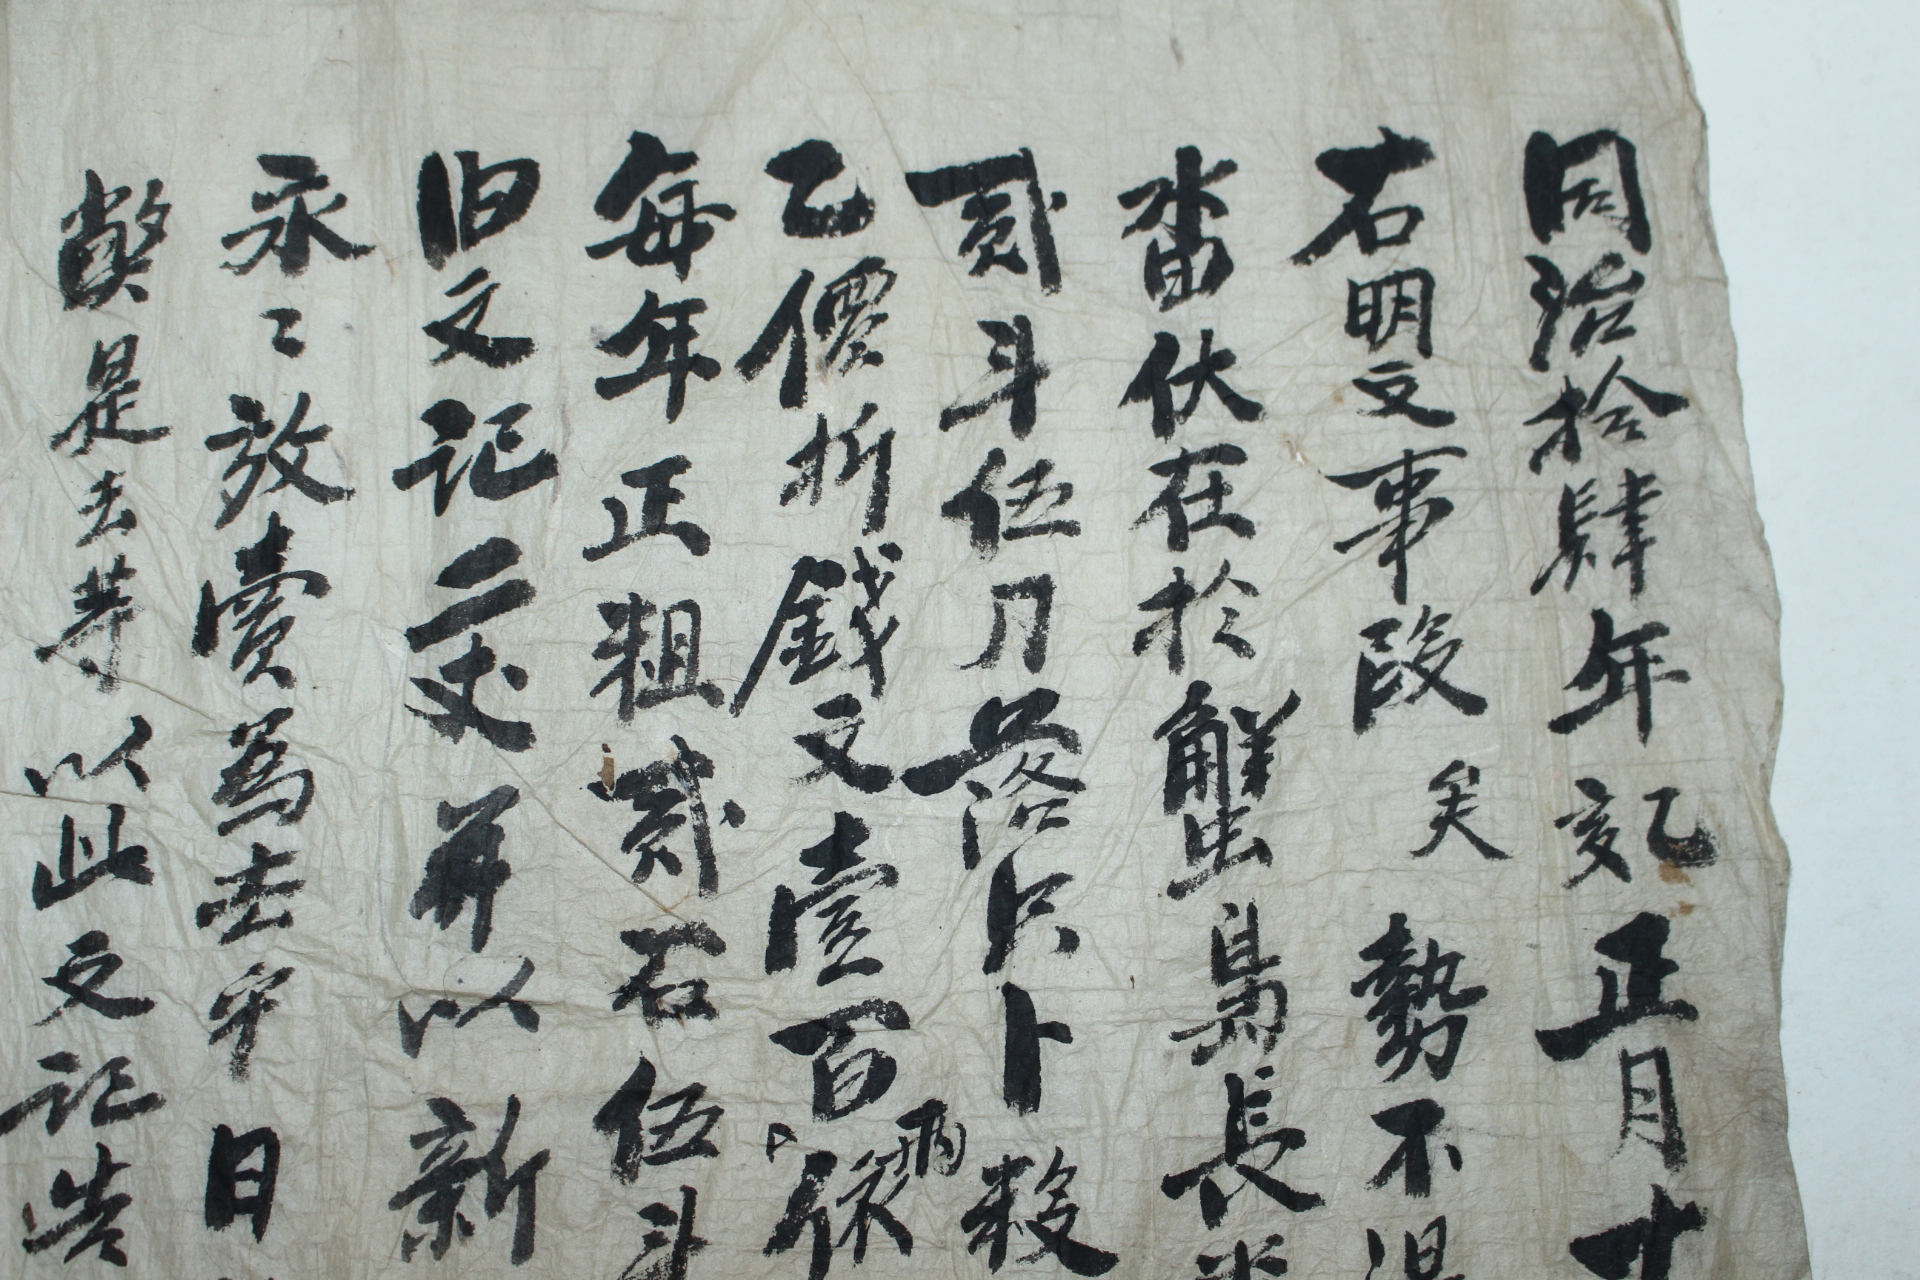 同治拾肆年乙亥正月十
右明文事段矣勢不得
畓伏在於蟹島長
貳斗伍刀落只卜数
乙價折錢文壹百両依
每年正租貳石伍斗
旧文記二丈并以新
永〻放賣爲去乎日
弊是去等以此文記告